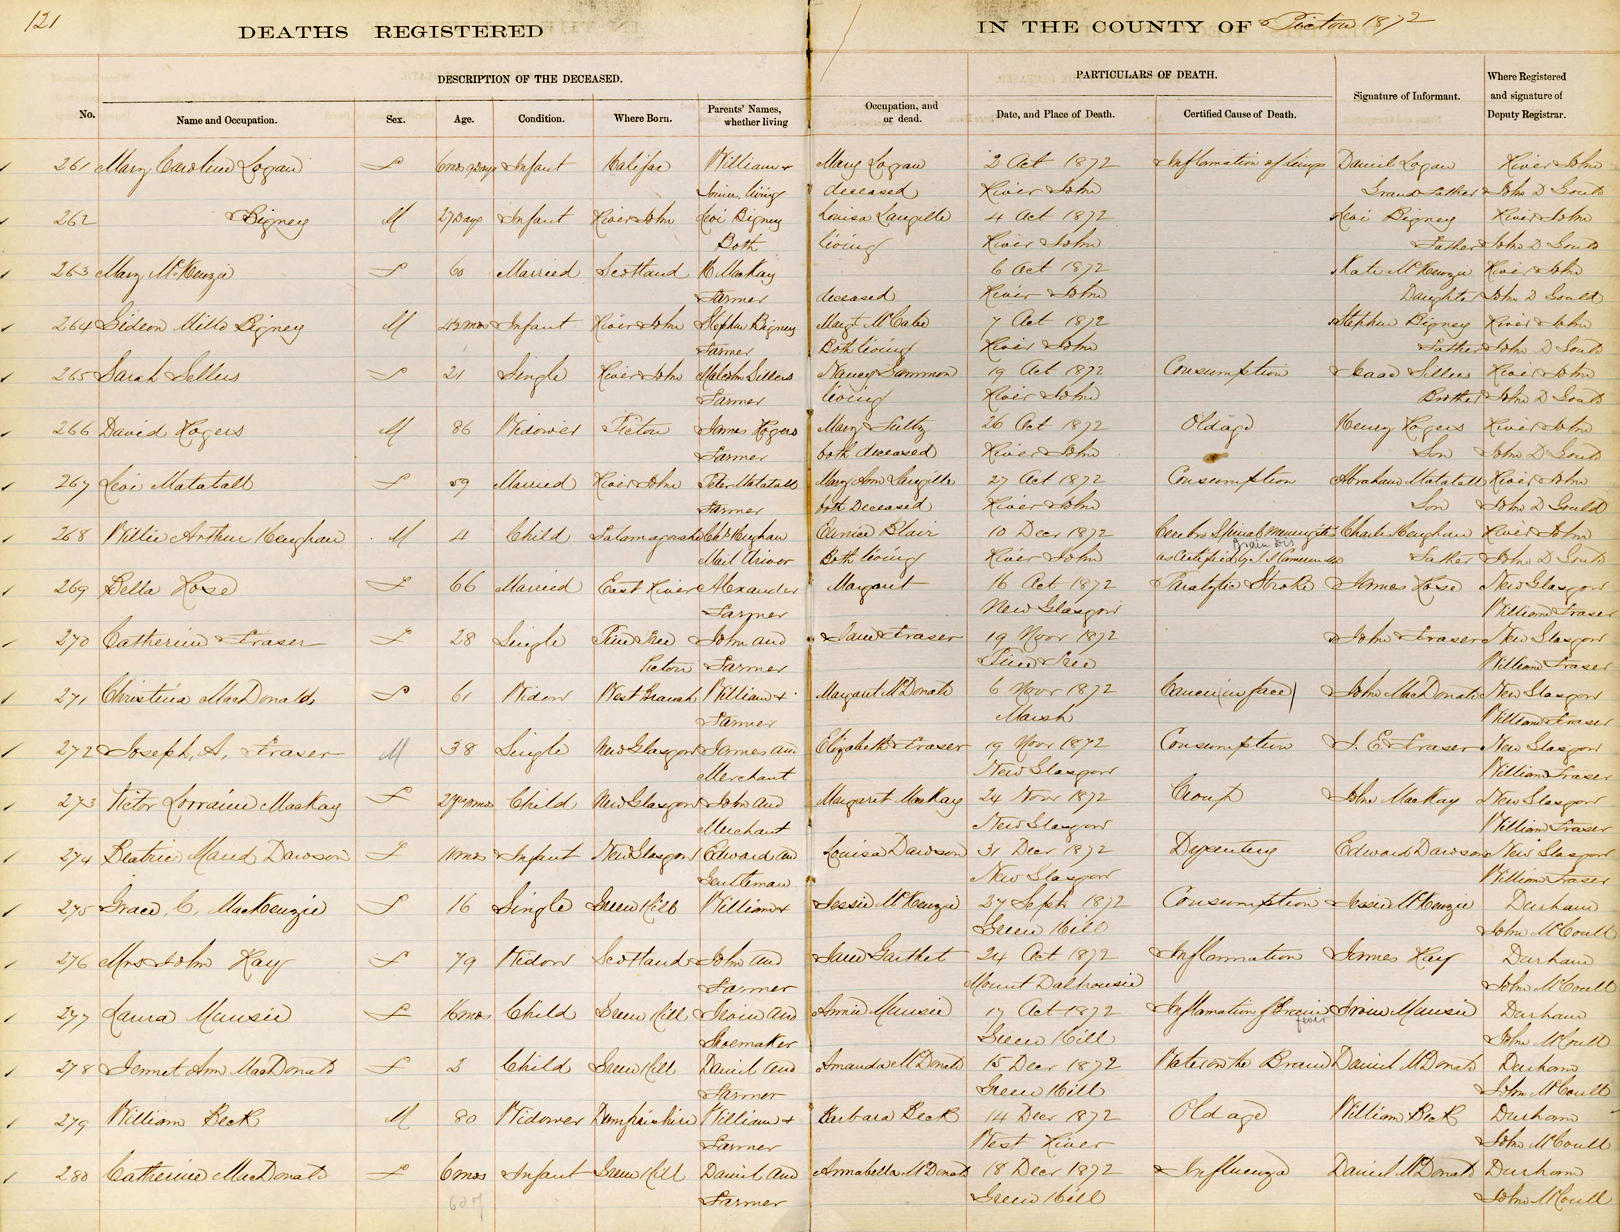 121
DEATHS REGISTERED IN THE COUNTY OF Pictou 1872
DESCRIPTION OF THE DECEASED. PARTICULARS OF DEATH.
No. Name and Occupation. Sex. Age. Condition. Where Born. Parents' Names, whether living Occupation, and or dead. Date, and Place of Death. Certified Cause of Death. Signature of Informant. Where Registered and signature of Deputy Registrar.
261 Mary Caroline Logan F 6mos 9days Infant Halifax William & Mary Logan 2 Oct 1872 Inflamation of Lungs Daniel Logan River John
living deceased River John Grandfather John D Gould
262 Bigney M 27 Days Infant River John Levi Bigney Louisa Langille 4 Oct 1872 Levi Bigney River John
Both living River John Father John D Gould
263 Mary McKenzie F 60 Married Scotland MacKay 6 Oct 1872 Kate McKenzie River John
Farmer deceased River John Daughter John D Gould
264 Gideon Mitto Bigney M 4½ mos Infant River John Stephen Bigney Margt McCabe 7 Oct 1872 Stephen Bigney River John
Farmer Both living River John Father John D Gould
265 Sarah Sellers F 21 Single River John Malcolm Sillers Nancy Gammon 19 Oct 1872 Consumption Isaac Sillers River John
Farmer living River John Brother John D Gould
266 David Rogers M 86 Widower Pictou James Rogers Mary 26 Oct 1872 Old age Henry Rogers River John
Farmer both deceased River John Son John D Gould
267 Levi Matatall F 59 Married River John Peter Matatall Mary Ann Langille 27 Oct 1872 Consumption Abraham Matatall River John
Farmer both Deceased River John Son John D Gould
268 Willie Arthur Heughan M 4 Child Tatamagouche Chs Heughan Eunice Blair 10 Decr 1872 Cerebro Spinal Meningitis Charles Heughan River John
Mail Driver Both living River John as Certified by Father John D Gould
269 Bella Rose F 66 Married East River Alexander Margaret 16 Oct 1872 Paralytic Stroke James Rose New Glasgow
Farmer New Glasgow William Fraser
270 Catherine Fraser F 28 Single Pine Tree John and Jane Fraser 19 Novr 1872 John Fraser New Glasgow
Pictou Farmer Pine Tree William Fraser
271 Christina MacDonald F 61 Widow West Branch William & Margaret McDonald 6 Novr 1872 Cancer (in face) John MacDonald New Glasgow
Farmer Marsh William Fraser
272 Joseph, A, Fraser M 38 Single New Glasgow James and Elizabeth Fraser 19 Novr 1872 Consumption J. E. Fraser New Glasgow
Merchant New Glasgow William Fraser
273 Victor Lorraine MacKay F Child New Glasgow John and Margaret MacKay 24 Novr 1872 Croup John MacKay New Glasgow
Merchant New Glasgow William Fraser
274 Beatrice Maud Dawson F 11 mos Infant New Glasgow Edward and Louisa Dawson 31 Decr 1872 Dysentery Edward Dawson New Glasgow
Gentleman New Glasgow William Fraser
275 Grace, C, MacKenzie F 16 Single Green Hill William & Jessie McKenzie 27 Sept 1872 Consumption Jessie McKenzie Durham
Green Hill John McCoull
276 Mrs John Hay F 79 Widow Scotland John and Jane 24 Oct 1872 Inflammation James Hay Durham
Farmer Mount Dalhousie John McCoull
277 Laura Mansie F 16 mos Child Green Hill Irvin and Annie Mansie 17 Oct 1872 Inflamation of Brain Irvin Mansie Durham
Shoemaker Green Hill fever John McCoull
278 Jennet Ann MacDonald F 3 Child Green Hill Daniel and Amanda McDonald 15 Decr 1872 Water on the Brain Daniel McDonald Durham
Farmer Green Hill John McCoull
279 William Beck M 80 Widower Dumfriesshire William & Barbara Beck 14 Decr 1872 Old age William Beck Durham
Farmer West River John McCoull
280 Catherine MacDonald F 6 mos Infant Green Hill Daniel and Annabella McDonald 18 Decr 1872 Influenza Daniel McDonald Durham
Farmer Green Hill John McCoull